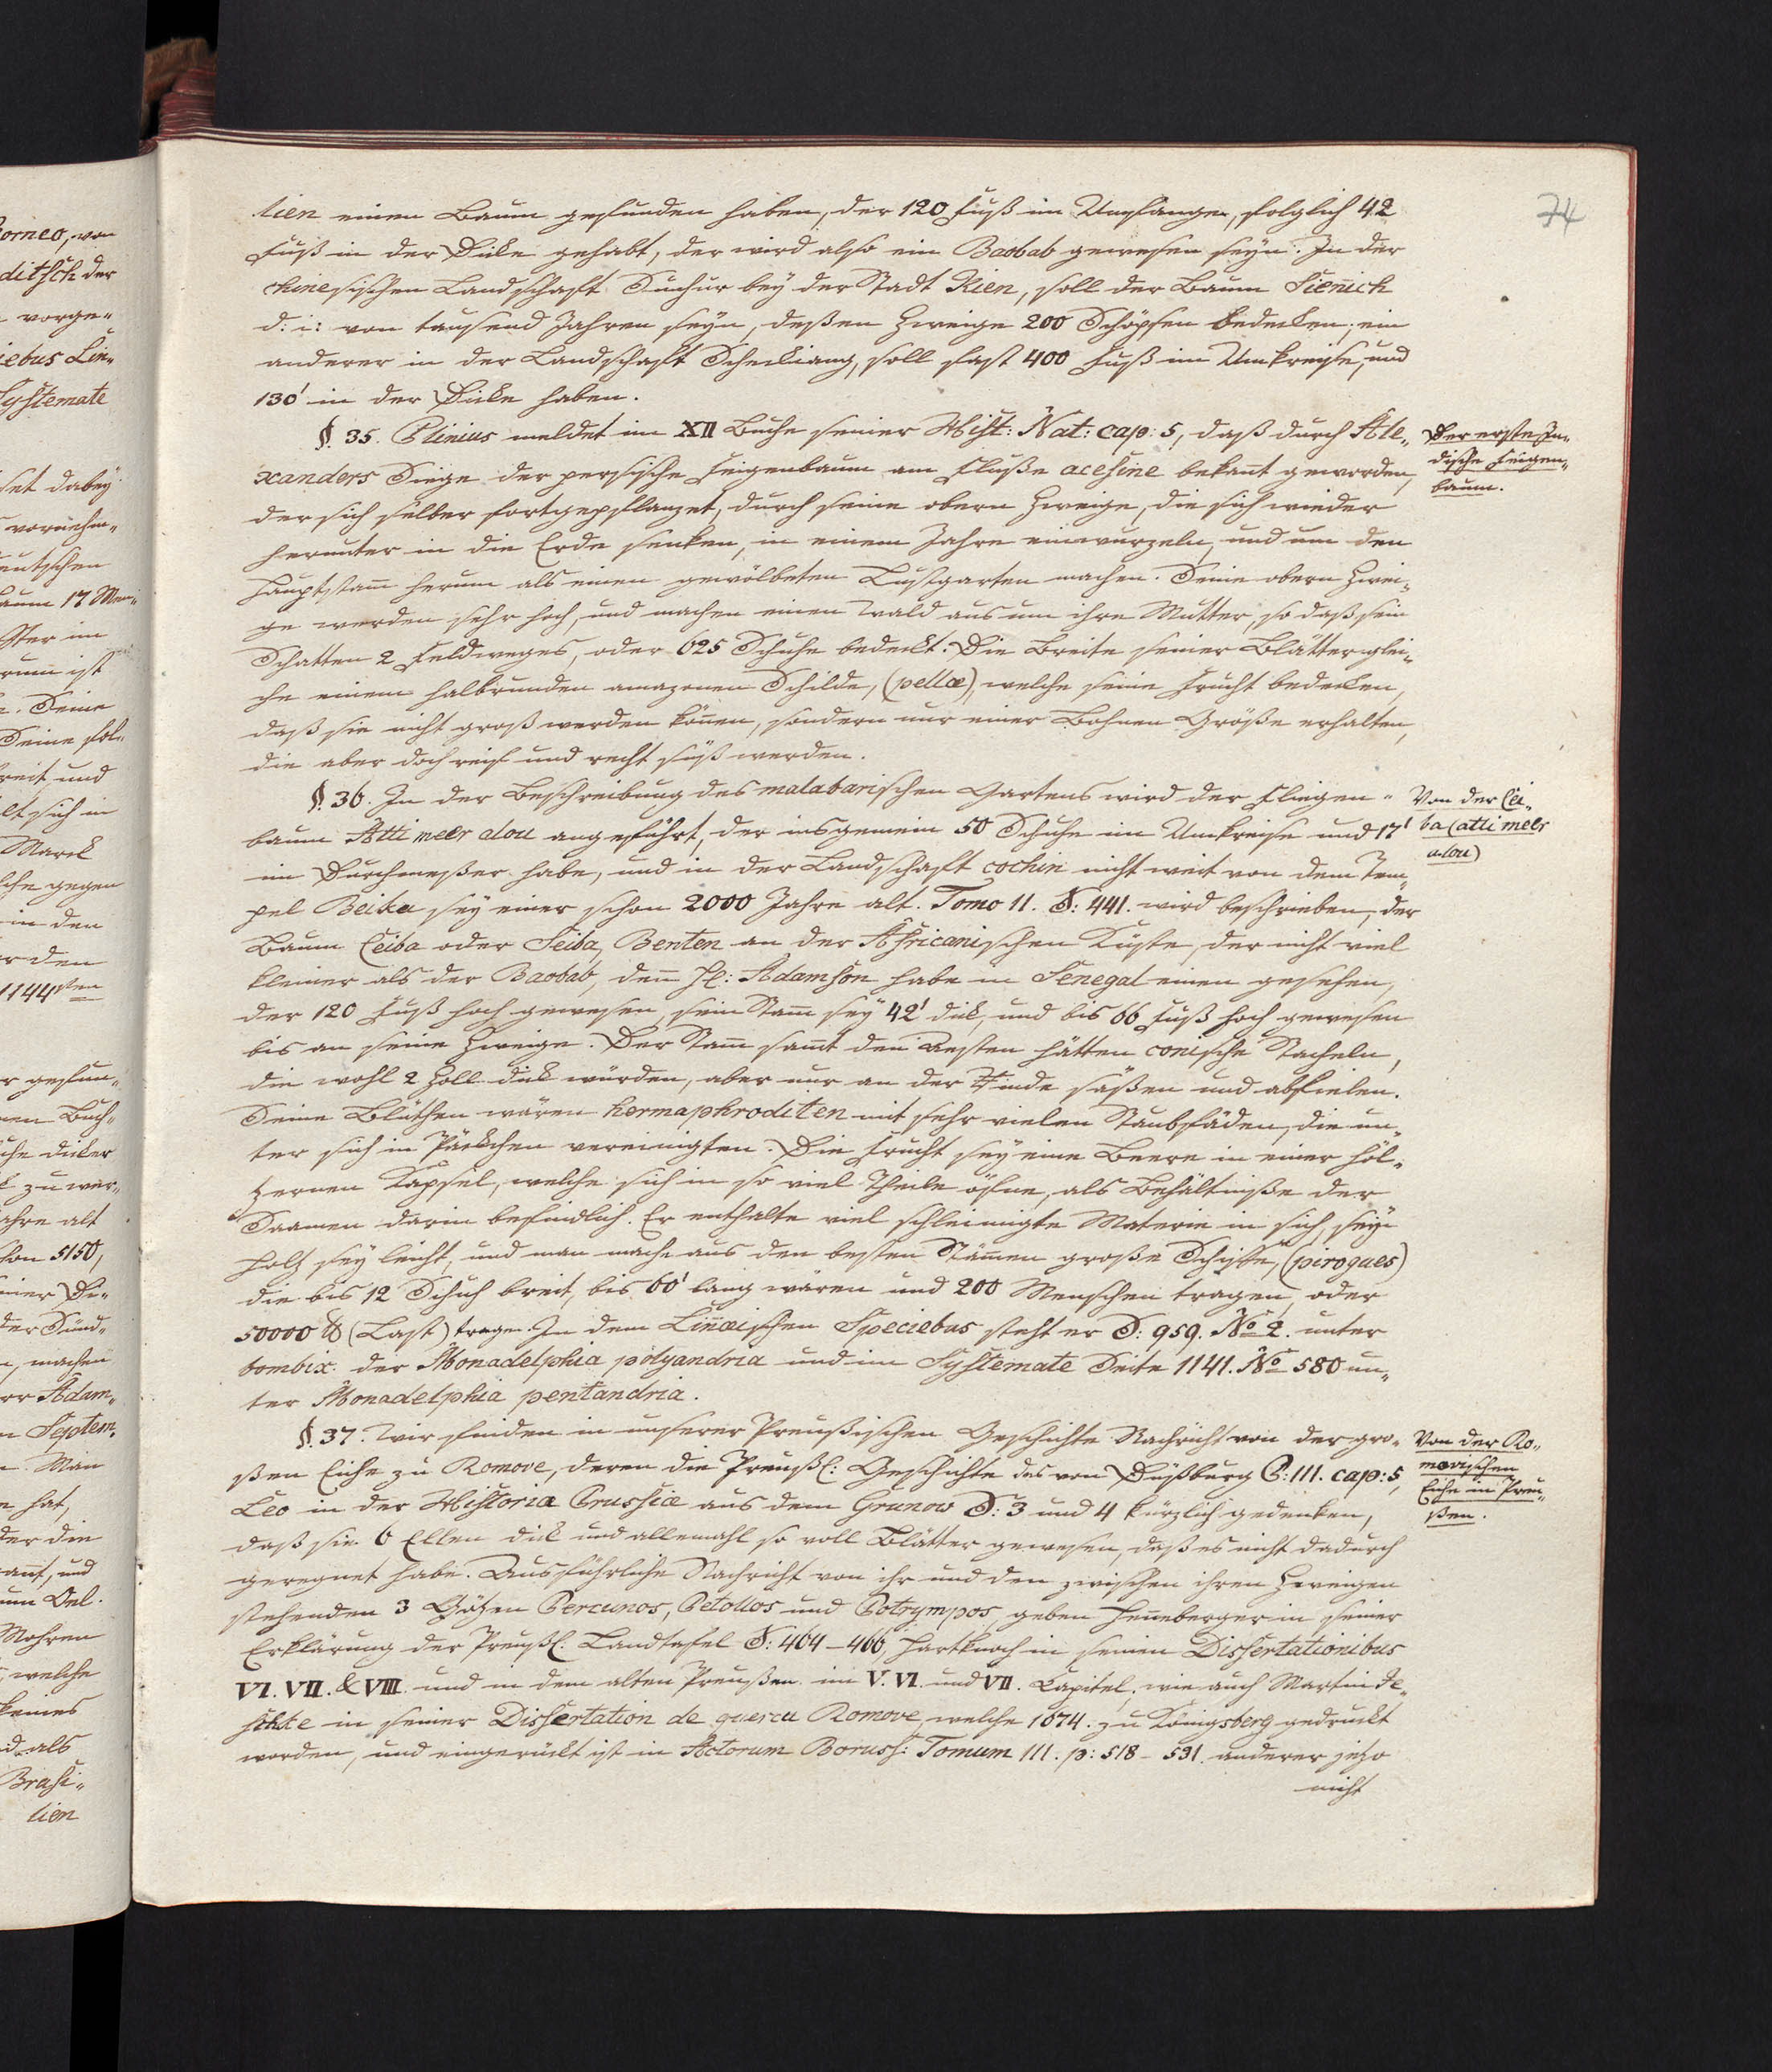 74
lien einen Baum gefunden haben, der 120 Fuß im Umfange, folglich 42
Fuß in der Dicke gehabt, der wird also ein Baobab gewesen seyn. In der
chinesischen Landschaft Suchur bey der Stadt Kien, soll der Baum Sieñich
d: i: von tausend Jahren seyn, deßen Zweige 200 Schöpsen bedecken; ein
anderer in der Landschaft Scheckiang, soll fast 400 Fuß im Umkreise, und
130' in der Dicke haben.
§. 35. Plinius meldet im XII Buche seiner Hist: Nat: cap: 5, daß durch Ale„
xanders Siege der persische Feigenbaum am Fluße acesine bekañt geworden,
der sich selber fortgepflanzet, durch seine obern Zweige, die sich wieder
herunter in die Erde senken, in einem Jahre einwurzeln, und um den
Hauptstam̃ herum als einen gewölbeten Lustgarten machen. Seine obern Zwei„
ge werden sehr hoch, und machen einen Wald aus um ihre Mutter, so daß sein
Schatten 2 Feldweges, oder 625 Schuhe bedeckt. Die Breite seiner Blätter glei„
che einem halbrunden amazonen Schilde, (pellæ), welche seine Frucht bedecken,
daß sie nicht groß werden köñen, sondern nur einer Bohnen Größe erhalten,
die aber doch reif und recht süß werden.
Der erste In„
dische Feigen„
baum.
§. 36. In der Beschreibung des malabarischen Gartens wird der Fliegen„
baum Atti meer alou angeführt, der insgemein 50 Schuhe im Umkreise und 17'
im Durchmeßer habe, und in der Landschaft cochin nicht weit von dem Tem„
pel Beika sey einer schon 2000 Jahre alt. Tomo 11. S: 441. wird beschrieben, der
Baum Ceiba oder Seiba, Benten an der Africanischen Küste, der nicht viel
kleiner als der Baobab, deñ H: Adamson habe in Senegal einen gesehen,
der 120 Fuß hoch gewesen, sein Stam̃ sey 42' dick, und bis 66 Fuß hoch gewesen
bis an seine Zweige. Der Stam̃ sam̃t den Aesten hätten conische Stacheln,
die wohl 2 Zoll dick würden, aber nur an der Rinde säßen und abfielen.
Seine Blüthen wären hermaphroditen mit sehr vielen Staubfäden, die un„
ter sich in Päckchen vereinigten. Die Frucht sey eine Beere in einer höl„
zernen Kapsel, welche sich in so viel Theile öfne, als Behältniße der
Saamen darin befindlich. Er enthalte viel schleimigte Materie in sich, sein
Holz sey leicht, und man mache aus den besten Stäm̃en große Schiffe, (pirogues)
die bis 12 Schuh breit, bis 60' lang wären und 200 Menschen tragen, oder
50000 ℔ (Last) tragen. In dem Liñæischen Speciebus steht er S: 959. No 2. unter
bombix. der Monadelphia polyandria und im Systemate Seite 1141. No 580 un„
ter Monadelphia pentandria.
Von der Cei„
ba (atti meer
alou)
§. 37. Wir finden in unserer Preußischen Geschichte Nachricht von der gro„
ßen Eiche zu Romove, deren die Preuß: Geschichte des von Düßburg P: III. cap: 5,
Leo in der Historia Prussiæ aus dem Grunow S: 3 und 4 kürzlich gedenken,
daß sie 6 Ellen dick und allemahl so voll Blätter gewesen, daß es nicht dadurch
geregnet habe. Ausführliche Nachricht von ihr und den zwischen ihren Zweigen
stehenden 3 Götzen Percunos, Petollos und Potrympos, geben Heñeberger in seiner
Erklärung der Preuß: Landtafel S: 464 – 466, Hartknoch in seinen Dissertationibus
VI. VII. & VIII. und in dem alten Preußen im V. VI. und VII. Capitel, wie auch Martin Je„
schke in seiner Dissertation de quercu Romove, welche 1674. zu Königsberg gedruckt
worden, und eingerückt ist in Actorum Boruss: Tomum III. p: 518 – 531. anderer jezo
nicht
Von der Ro„
movischen
Eiche in Preu„
ßen.